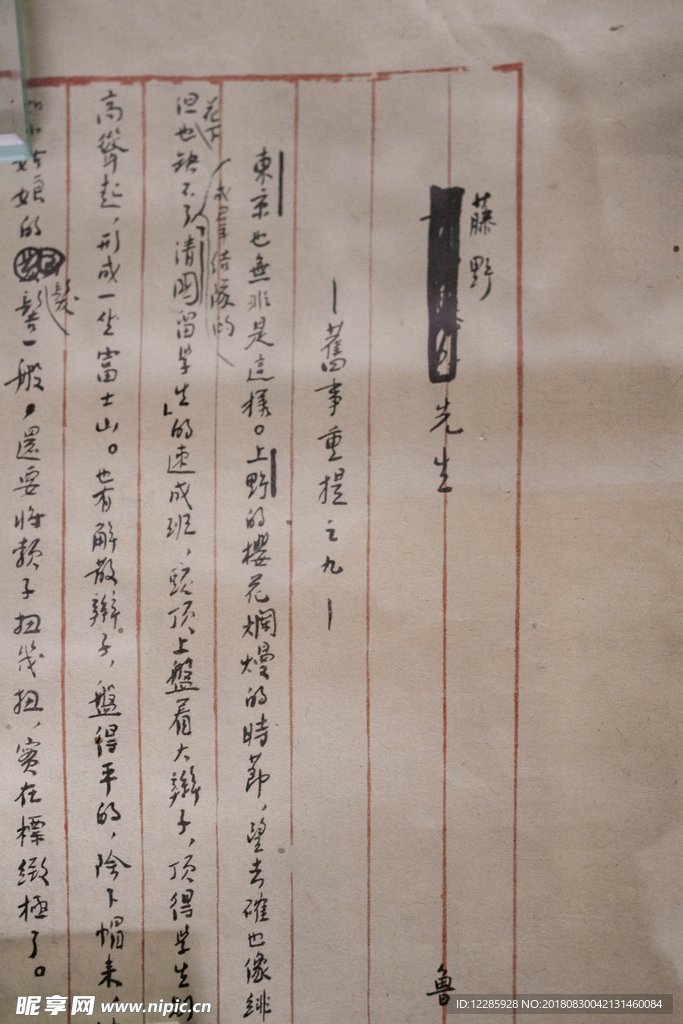 藤野先生
魯
—舊事重提之九—
東京也無非是這樣。上野的櫻花爛熳的時節，望去確也像緋
花下
成羣結隊的
但也缺不了「清國留學生」的速成班，頭頂上盤着大辮子，頂得學生
高聳起，形成一坐富士山。也有解散辮子，盤得平的，除下帽來，
姑娘的髮髻一般，還要將頸子扭幾扭，實在標緻極了。
昵享网 www.nipic.cn
ID:12285928 NO:20180830042131460084